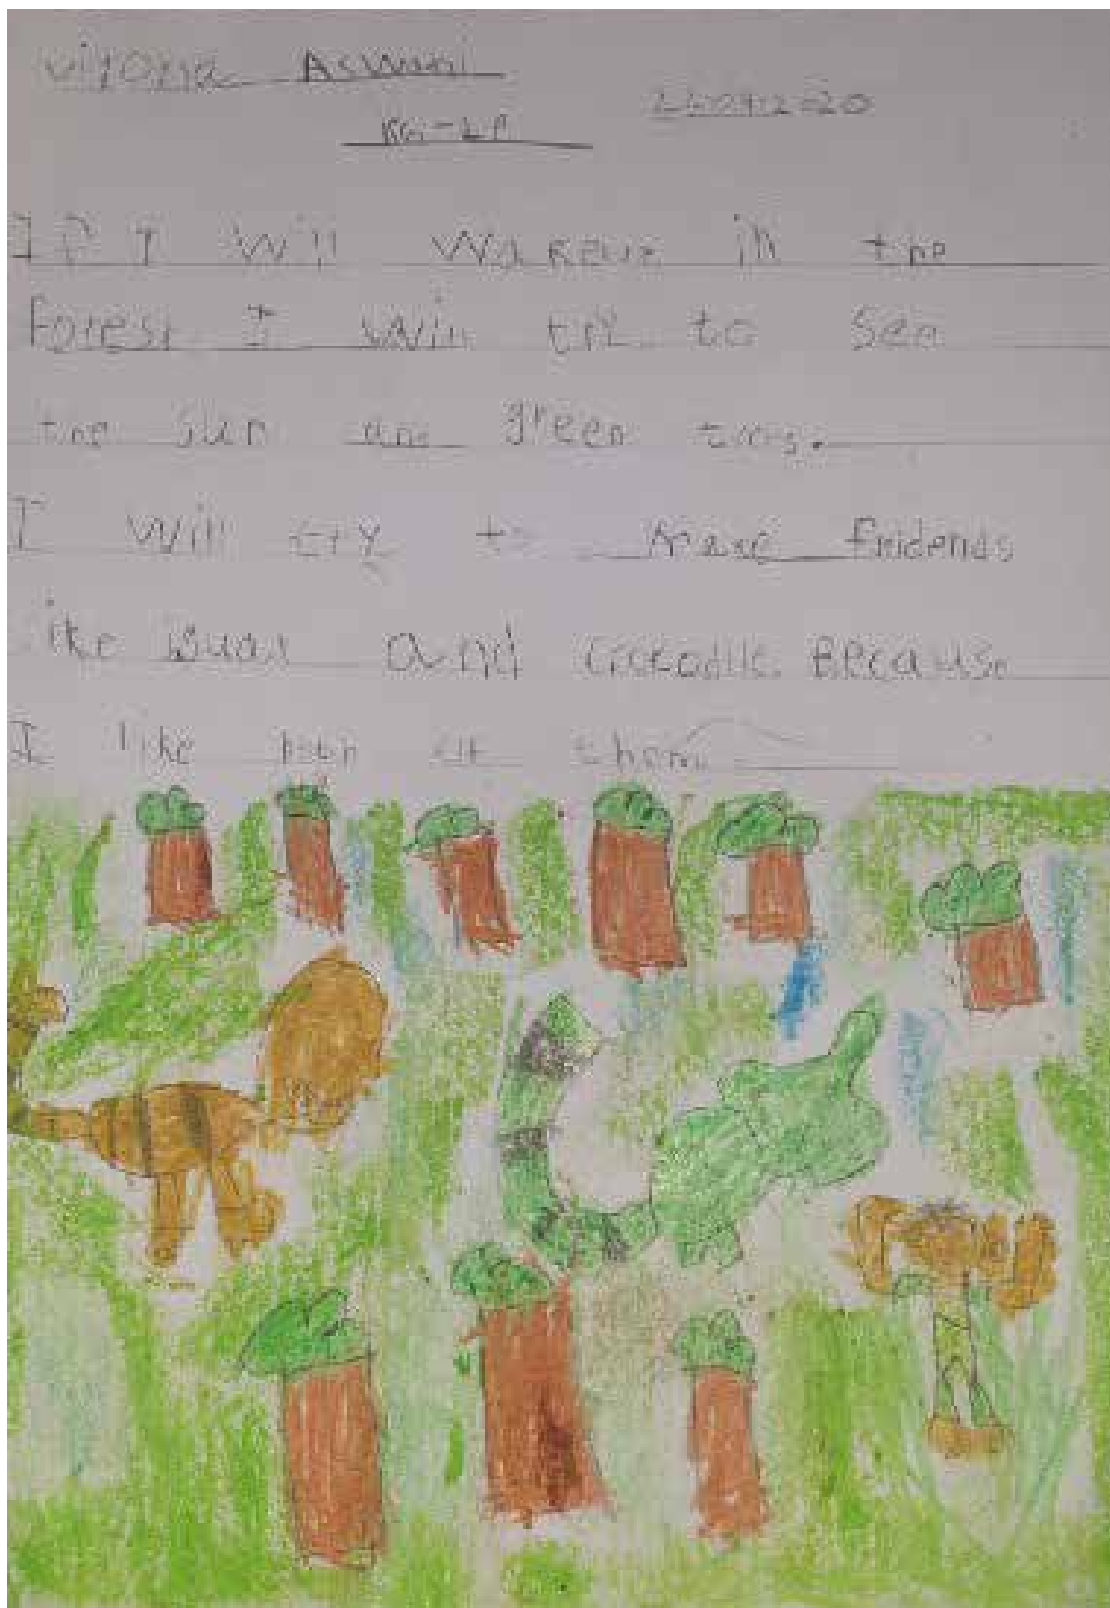 Aswani
If I will wakeup in the
forest I will try to see
the sun and green trees.
I will try to make fridends
like and crocodile because
I like both of them